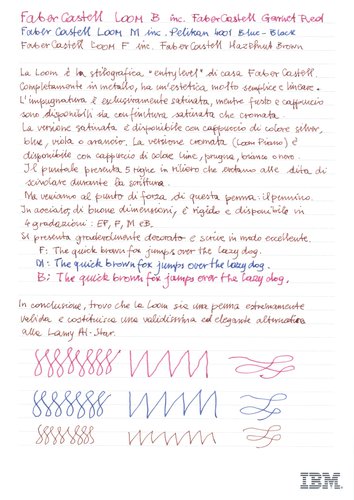 Faber Castell Loom B inc. Faber Castell Garnet Red
Faber Castell Loom M inc. Pelikan 4001 Blue-Black
Faber Castell Loom F inc. Faber Castell Hazelnut Brown
La Loom è la stilografica "entry level" di casa Faber Castell.
Completamente in metallo, ha un'estetica molto semplice e lineare.
L'impugnatura è esclusivamente satinata, mentre fusto e cappuccio
sono disponibili sia con finitura satinata che cromata.
La versione satinata è disponibile con cappuccio di colore silver,
blue, viola o arancio. La versione cromata (Loom Piano) è
disponibile con cappuccio di colore lime, prugna, bianco o nero.
Il puntale presenta 5 righe in rilievo che evitano alle dita di
scivolare durante la scrittura.
Ma veniamo al punto di forza di questa penna: il pennino.
In acciaio, di buone dimensioni, è rigido e disponibile in
4 gradazioni: EF, F, M e B.
Si presenta gradevolmente decorato e scrive in modo eccellente.
F: The quick brown fox jumps over the lazy dog.
M: The quick brown fox jumps over the lazy dog.
B: The quick brown fox jumps over the lazy dog.
In conclusione, trovo che la Loom sia una penna estremamente
valida e costituisca una validissima ed elegante alternativa
alla Lamy Al-Star.
IBM